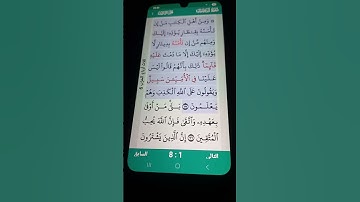 ۞ وَمِنْ أَهْلِ ٱلْكِتَٰبِ مَنْ إِن
تَأْمَنْهُ بِقِنطَارٍ يُؤَدِّهِۦٓ إِلَيْكَ
وَمِنْهُم مَّنْ إِن تَأْمَنْهُ بِدِينَارٍ لَّا
يُؤَدِّهِۦٓ إِلَيْكَ إِلَّا مَا دُمْتَ عَلَيْهِ
قَآئِمًا ذَٰلِكَ بِأَنَّهُمْ قَالُوا۟ لَيْسَ
عَلَيْنَا فِى ٱلْأُمِّيِّـۧنَ سَبِيلٌ
وَيَقُولُونَ عَلَى ٱللَّهِ ٱلْكَذِبَ وَهُمْ
يَعْلَمُونَ ۝ بَلَىٰ مَنْ أَوْفَىٰ
بِعَهْدِهِۦ وَٱتَّقَىٰ فَإِنَّ ٱللَّهَ يُحِبُّ
ٱلْمُتَّقِينَ ۝ إِنَّ ٱلَّذِينَ يَشْتَرُونَ
التالى 8 : 1 السابق